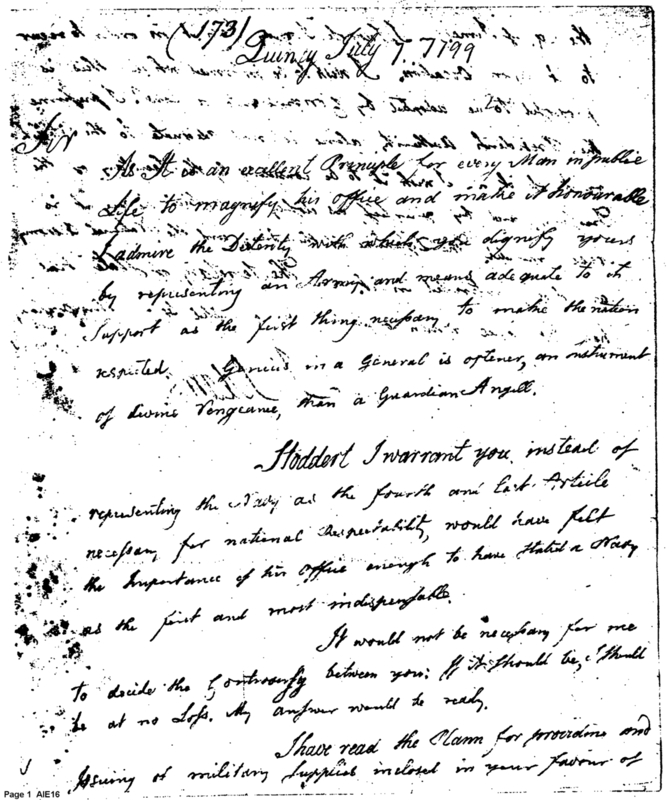 (173)
Quincy July 7. 1799
Sir
As It is an excellent Principle for every Man in public
Life to magnify his office and make it honourable
I admire the Dexterity with which you dignify yours
by representing an Army, and means adequate to its
Support as the first thing necessary to make the nation
respected. Genius in a General is oftener, an instrument
of divine Vengeance, than a Guardian Angell.
Stoddert I warrant you, instead of
representing the Navy as the fourth and last Article
necessary for national Respectability, would have felt
the Importance of his Office enough to have stated a Navy
as the first and most indispensable.
It would not be necessary for me
to decide the Controversy between you: If it should be, I should
be at no Loss. My answer would be ready.
I have read the Plann for providing and
Issuing of military Supplies inclosed in your favour of
Page 1 AIE16